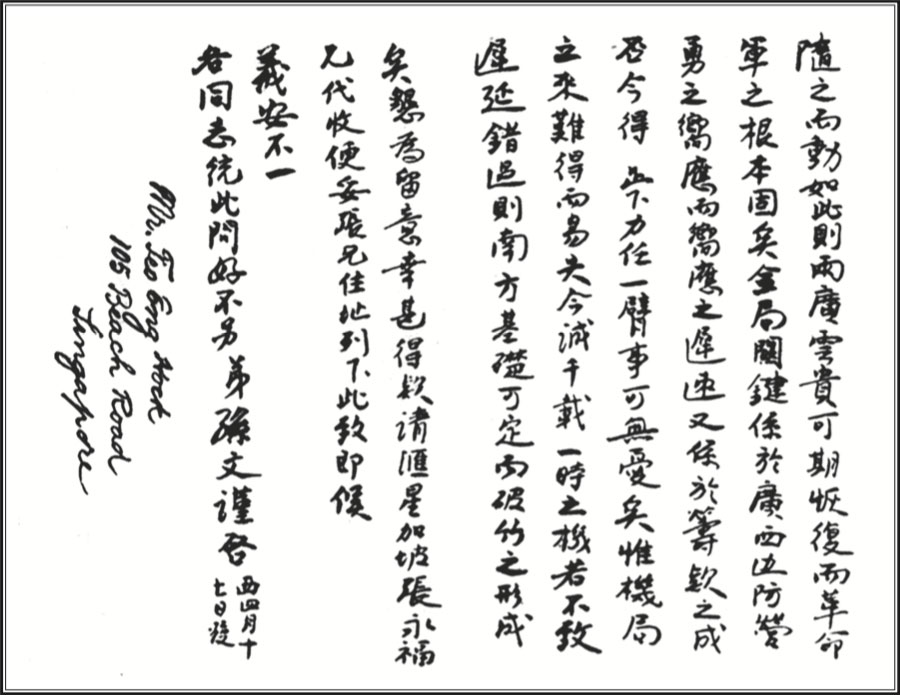 隨之而動如此則兩廣雲貴可期恢復而革命
軍之根本固矣全局關鍵係於廣西边防營
勇之嚮應而嚮應之遲速又係於籌欵之成
否今得 足下力任一臂事可無憂矣惟機局
之來難得而易失今誠千載一時之機若不致
遲延錯過則南方基礎可定而破竹之形成
矣懇為留意幸甚得欵請匯星加坡張永福
兄代收便妥張兄住址列下此致即候
義安不一
各同志統此問好不另 弟孫文謹啓 西四月十
七日發
Mr. Teo Eng Hock
105 Beach Road
Singapore